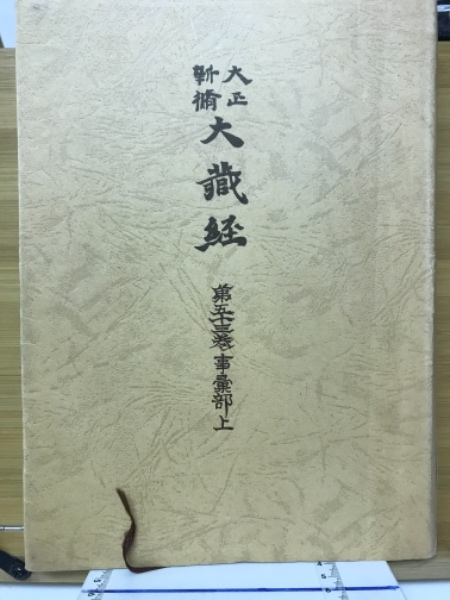 大正
新脩
大藏経
第五十三巻事彙部上